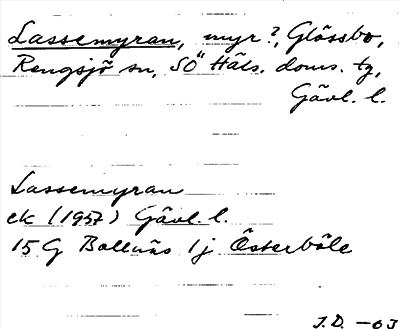 Lassemyran, myr?, Glössbo,
Rengsjö sn, SÖ Häls. doms. tg,
Gävl. l.
Lassemyran
ek (1957) Gävl. l.
15 G Bollnäs 1j Österböle
J.D. -03